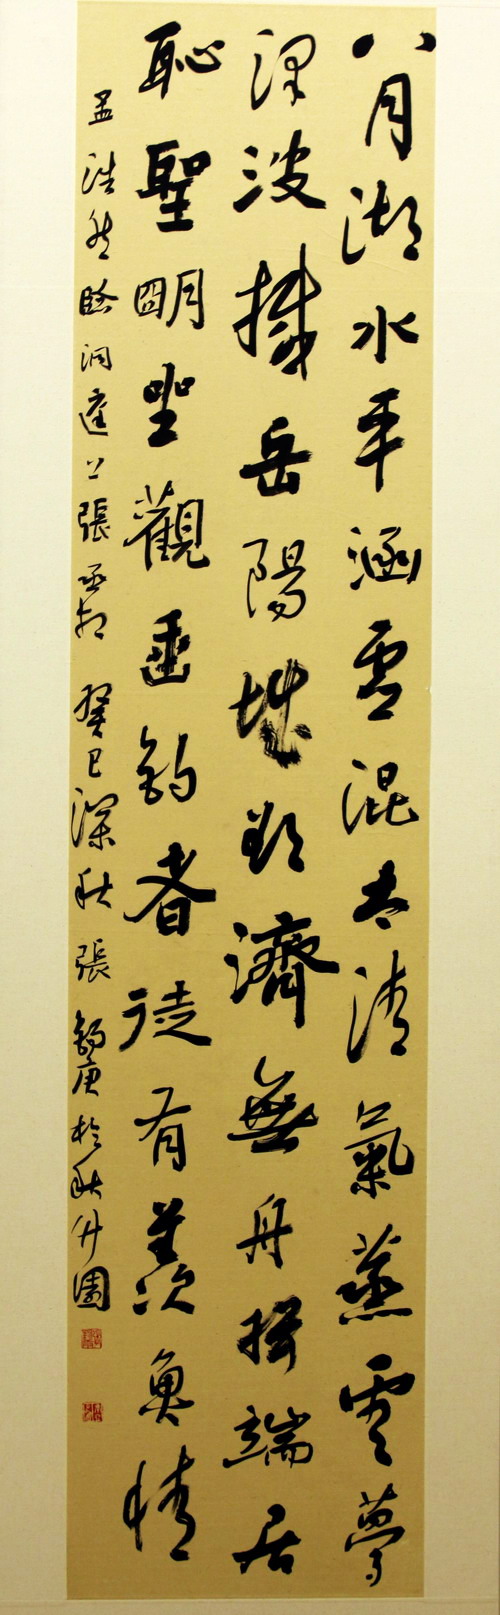 八月湖水平涵虚混太清氣蒸雲夢
澤波撼岳陽城欲濟無舟楫端居
恥聖明坐觀垂釣者徒有羡魚情
孟浩然臨洞庭上張丞相 癸巳深秋 張錫庚於秋竹園